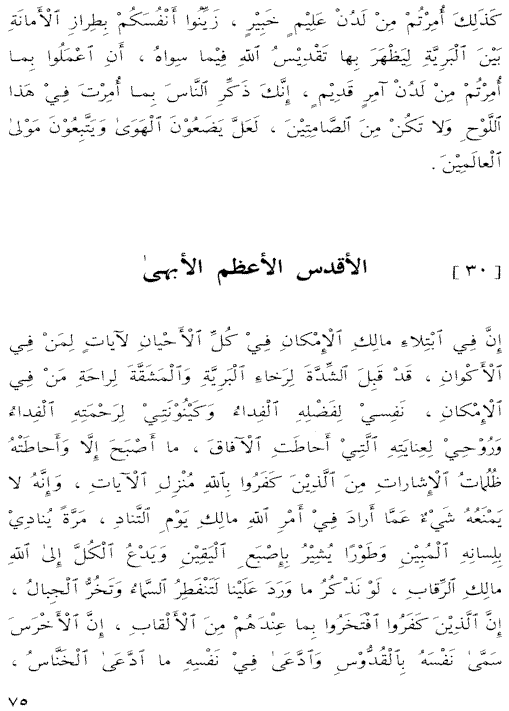 كَذَلِكَ أُمِرْتُمْ مِنْ لَدُنْ عَلِيْمٍ خَبِيْرٍ ، زَيِّنُوا أَنْفُسَكُمْ بِطِرازِ ٱلْأَمانَةِ
بَيْنَ ٱلْبَرِيَّةِ لِيَظْهَرَ بِها تَقْدِيْسُ ٱللّهِ فِيْما سِواهُ ، أَنِ ٱعْمَلُوا بِما
أُمِرْتُمْ مِنْ لَدُنْ آمِرٍ قَدِيْمٍ ، إِنَّكَ ذَكِّرِ ٱلنَّاسَ بِما أُمِرْتَ فِيْ هَذا
ٱللَّوْحِ وَلا تَكُنْ مِنَ ٱلصَّامِتِيْنَ ، لَعَلَّ يَضَعُوْنَ ٱلْهَوَىٰ وَيَتَّبِعُوْنَ مَوْلىٰ
ٱلْعالَمِيْنَ .
[ ٣٠ ] الأقدس الأعظم الأبهىٰ
إِنَّ فِي ٱبْتِلاءِ مالِكِ ٱلْإِمْكانِ فِيْ كُلِّ ٱلْأَحْيانِ لَآياتٍ لِمَنْ فِي
ٱلْأَكْوانِ ، قَدْ قَبِلَ ٱلشِّدَّةَ لِرَخاءِ ٱلْبَرِيَّةِ وَٱلْمَشَقَّةَ لِراحَةِ مَنْ فِي
ٱلْإِمْكانِ ، نَفْسِيْ لِفَضْلِهِ ٱلْفِداءُ وَكَيْنُوْنَتِيْ لِرَحْمَتِهِ ٱلْفِداءُ
وَرُوْحِيْ لِعِنايَتِهِ ٱلَّتِيْ أَحاطَتِ ٱلْآفاقَ ، ما أَصْبَحَ إِلَّا وَأَحاطَتْهُ
ظُلُماتُ ٱلْإِشاراتِ مِنَ ٱلَّذِيْنَ كَفَرُوا بِٱللّهِ مُنْزِلِ ٱلْآياتِ ، وَإِنَّهُ لا
يَمْنَعُهُ شَيْءٌ عَمَّا أَرادَ فِيْ أَمْرِ ٱللّهِ مالِكِ يَوْمِ ٱلتَّنادِ ، مَرَّةً يُنادِيْ
بِلِسانِهِ ٱلْمُبِيْنِ وَطَوْرًا يُشِيْرُ بِإِصْبَعِ ٱلْيَقِيْنِ وَيَدْعُ ٱلْكُلَّ إِلىٰ ٱللّهِ
مالِكِ ٱلرِّقابِ ، لَوْ نَذْكُرُ ما وَرَدَ عَلَيْنا لَتَنْفَطِرُ ٱلسَّماءُ وَتَخُرُّ ٱلْجِبالُ ،
إِنَّ ٱلَّذِيْنَ كَفَرُوا ٱفْتَخَرُوا بِما عِنْدَهُمْ مِنَ ٱلْأَلْقابِ ، إِنَّ ٱلْأَخْرَسَ
سَمَّىٰ نَفْسَهُ بِٱلْقُدُّوْسِ وَٱدَّعَىٰ فِيْ نَفْسِهِ ما ٱدَّعَىٰ ٱلْخَنَّاسُ ،
٧٥